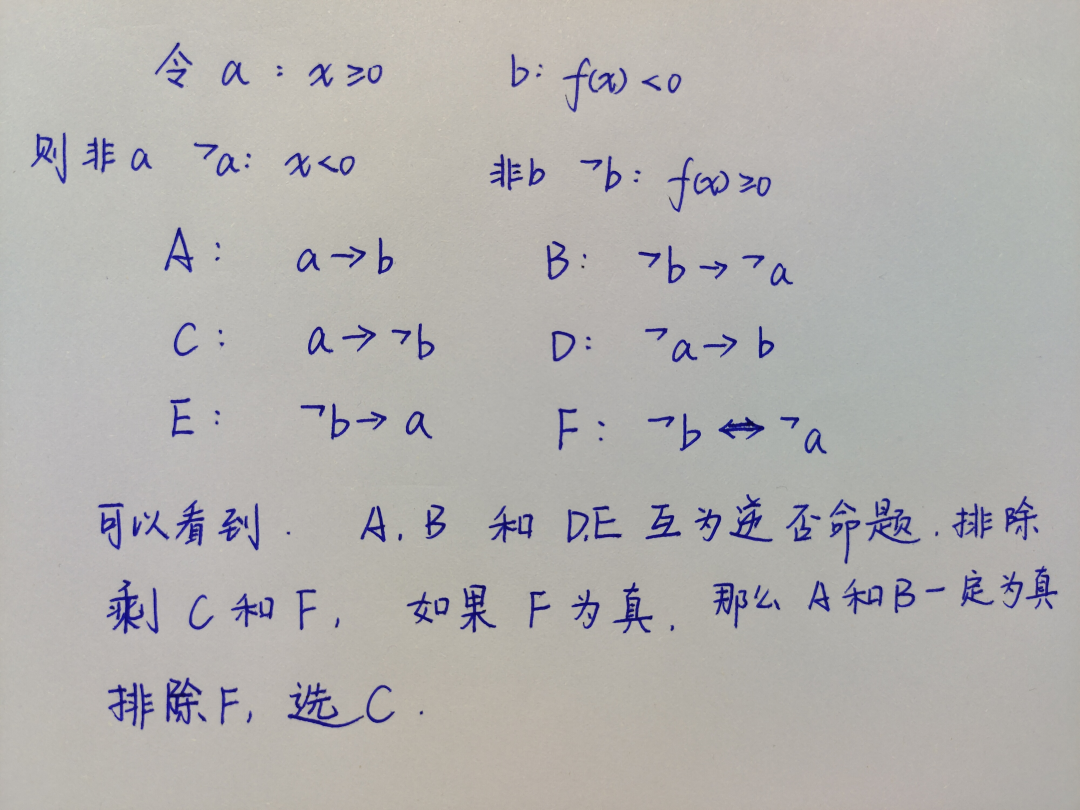 令 a : x≥0 b: f(x)<0
则非a ¬a: x<0 非b ¬b: f(x)≥0
A: a→b B: ¬b→¬a
C: a→¬b D: ¬a→b
E: ¬b→a F: ¬b⇔¬a
可以看到. A.B 和 D.E 互为逆否命题.排除
剩C和F, 如果 F为真. 那么A和B一定为真
排除F, 选C.